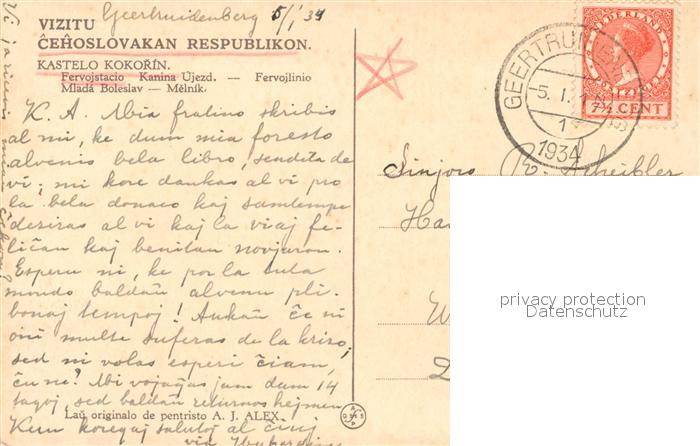 Geertruidenberg 5/1 34
VIZITU
ĈEĤOSLOVAKAN RESPUBLIKON.
KASTELO KOKOŘÍN.
Fervojstacio Kanina Újezd. — Fervojlinio
Mladá Boleslav — Mělník.
K. A. Mia fratino skribis
al mi, ke dum mia foresto
alvenis bela libro, sendita de
vi; mi kore dankas al vi pro
la bela donaco kaj samtempe
deziras al vi kaj la viaj fe-
liĉan kaj benitan novjaron.
Esperu ni, ke por la tuta
mondo baldaŭ alvenu pli
bonaj tempoj! Ankaŭ ĉe ni
oni multe suferas de la krizo,
sed ni volas esperi ĉiam,
ĉu ne? Mi vojaĝas jam dum 14
tagoj, sed baldaŭ returnos hejmen
Laŭ originalo de pentristo A. J. ALEX.
Kun koregaj salutoj al ĉiuj
via
NEDERLAND
7½ CENT
GEERTRUIDENBERG
5.I.
1934
Sinjoro
privacy protection
Datenschutz